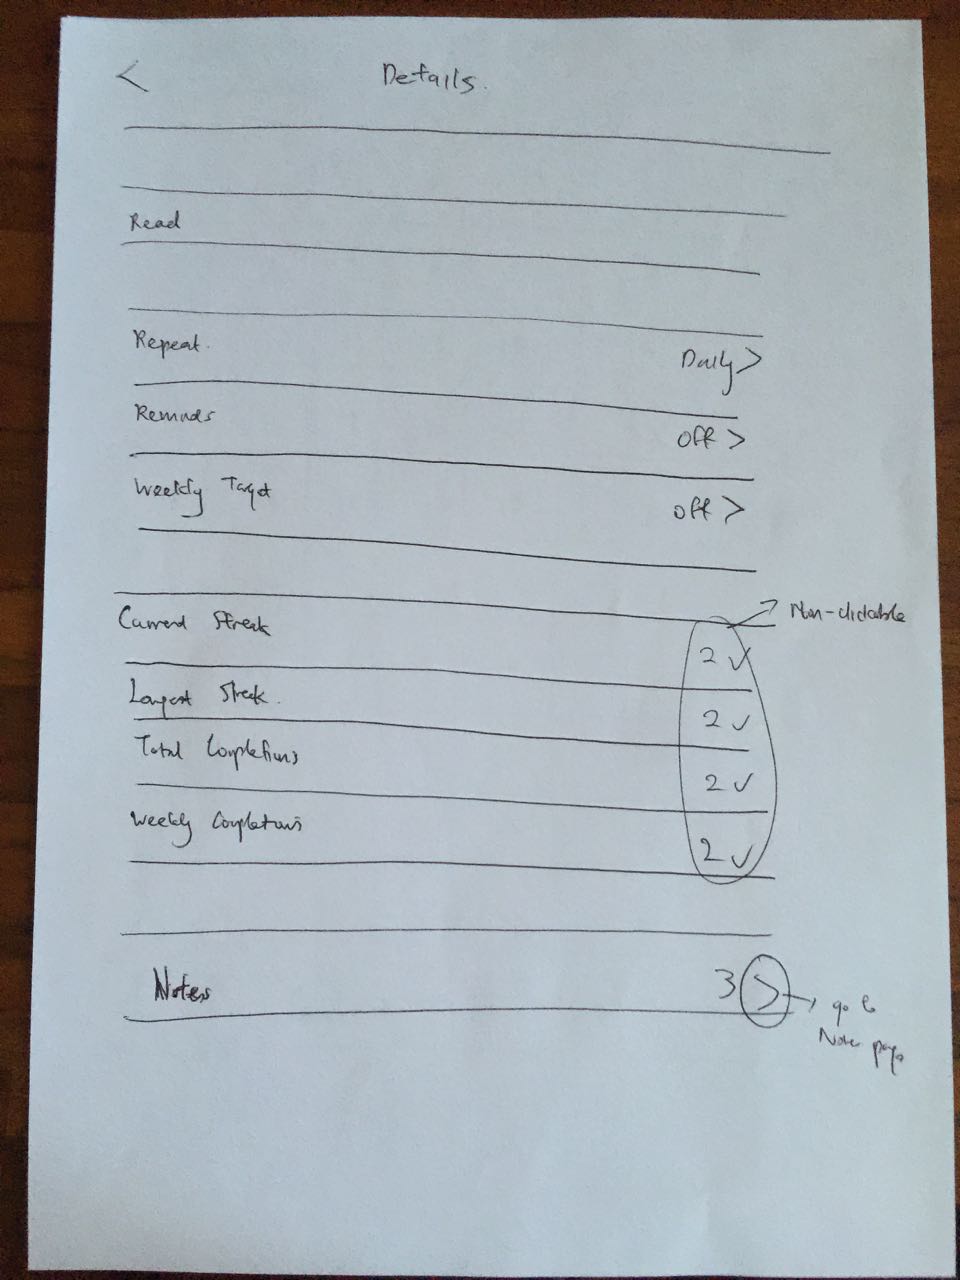 < Details.
Read
Repeat. Daily >
Reminds off >
Weekly Target off >
Non-clickable
Current Streak 2 ✓
Longest Streak. 2 ✓
Total Completions 2 ✓
Weekly Completions 2 ✓
Notes 3 >
go to
Note page